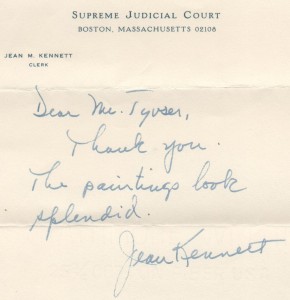 SUPREME JUDICIAL COURT
BOSTON, MASSACHUSETTS 02108
JEAN M. KENNETT
CLERK
Dear Mr.
Thank you.
The paintings look
splendid.
Jean Kennett